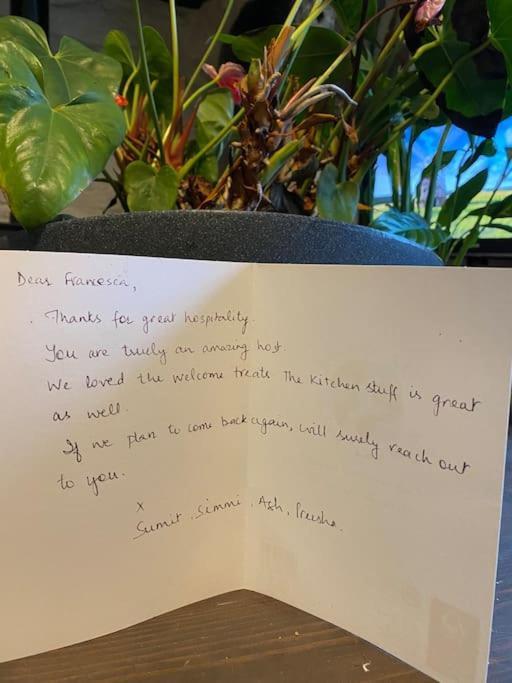 Dear Francesca,
Thanks for great hospitality.
You are truely an amazing host.
We loved the welcome treats The Kitchen stuff is great
as well.
If we plan to come back again, will surely reach out
to you.
x
Sumit, Simmi, Ash, Preesha.